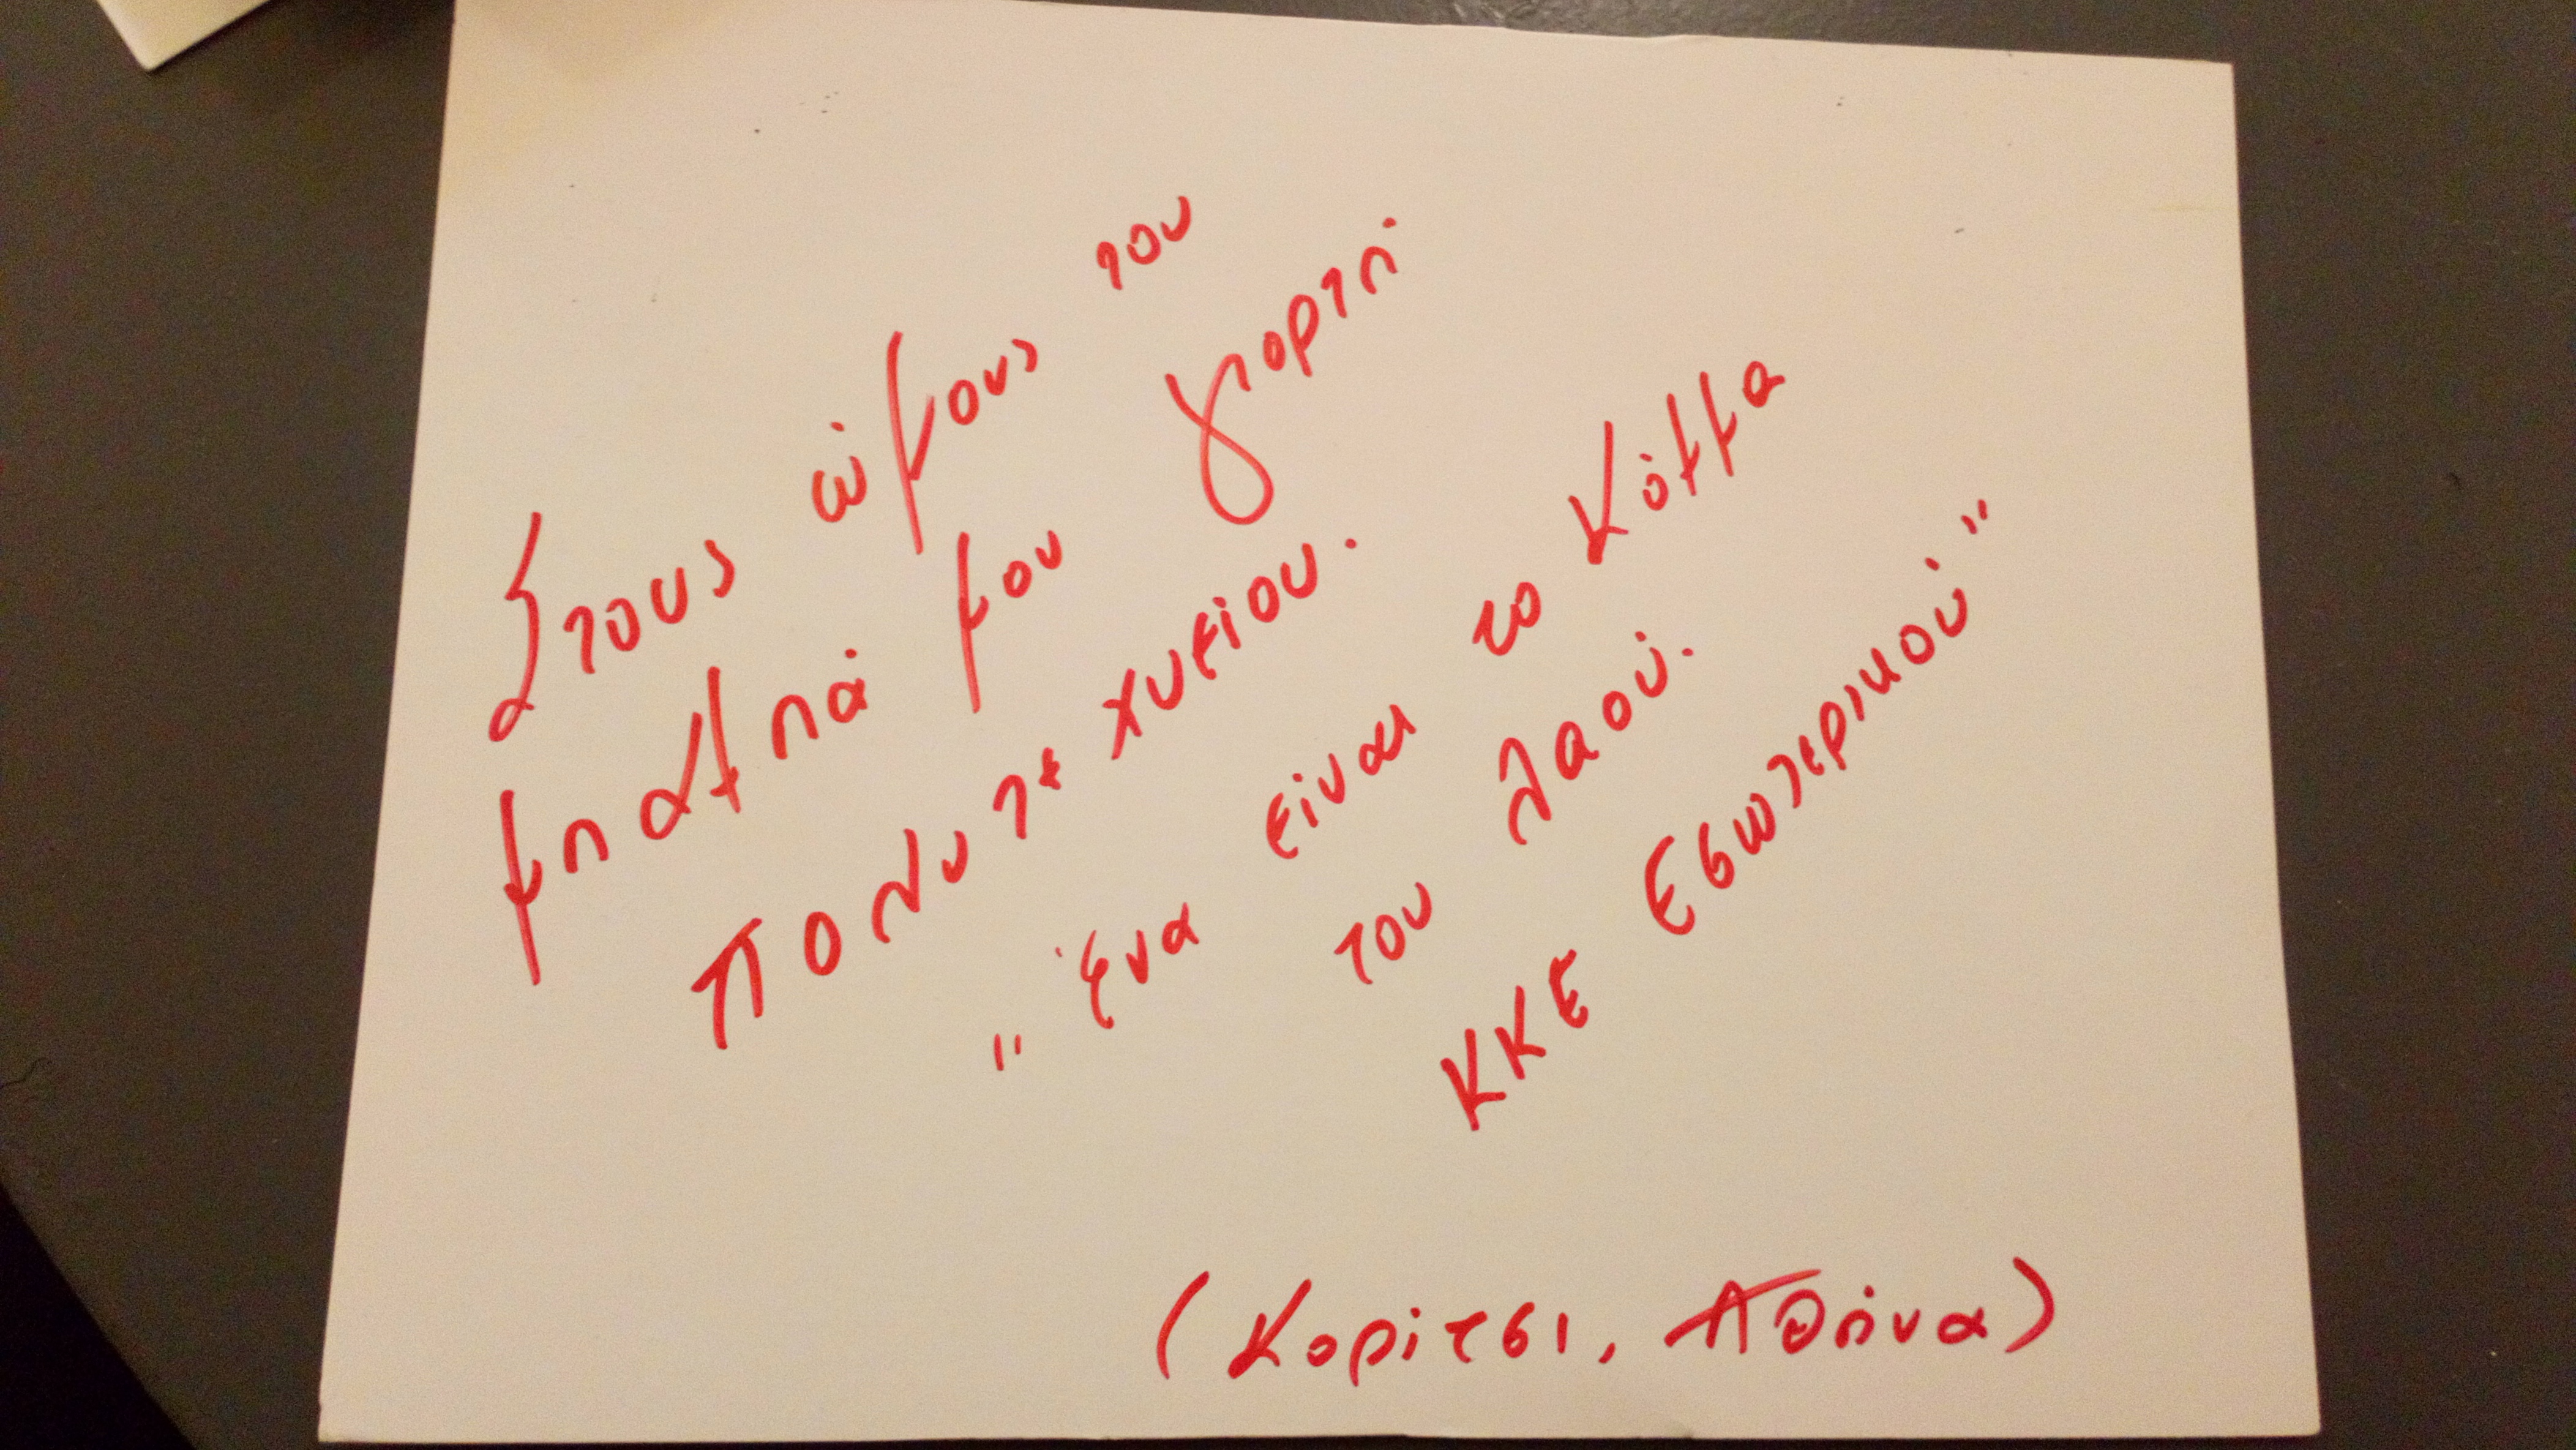 Στους ώμους του
μπαμπά μου γιορτή
Πολυτεχνείου.
"Ένα είναι το Κόμμα
του λαού.
ΚΚΕ Εσωτερικού"
(Κορίτσι, Αθήνα)